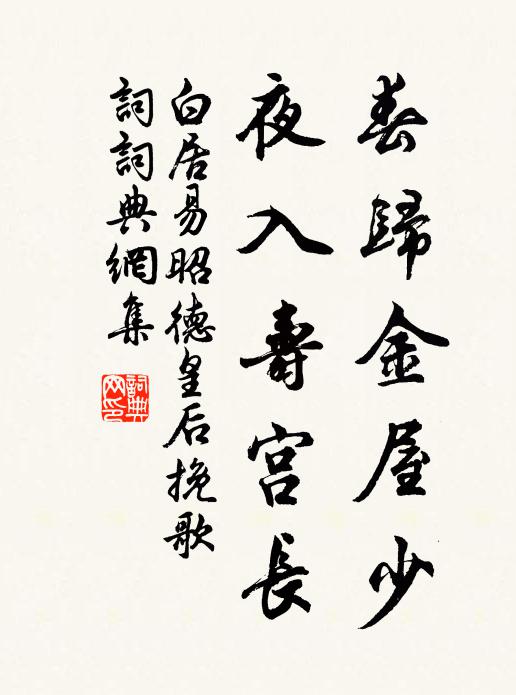 春歸金屋少
夜入壽宮長
白居易昭德皇后挽歌
詞詞典網集
詞典网印